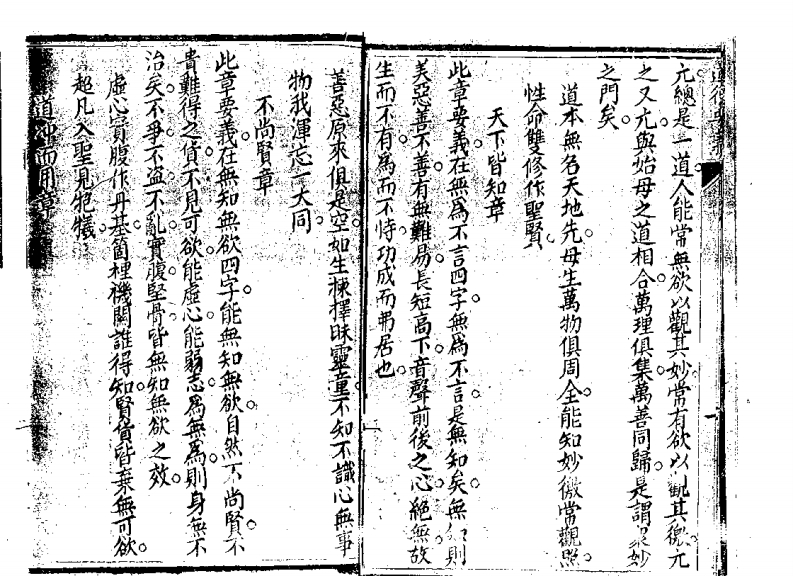 元總是一道人能常無欲以觀其妙常有欲以觀其徼元
之又元與始母之道相合萬理俱集萬善同歸是謂衆妙
之門矣
道本無名天地先母生萬物俱周全能知妙徼常觀照
性命雙修作聖賢
天下皆知章
此章要義在無為不言四字無為不言是無知矣無 則
美惡善不善有無難易長短高下音聲前後之心絕無故
生而不有為而不恃功成而弗居也
善惡原來俱是空如生揀擇昧靈童不知不識心無事
物我渾忘一大同
不尚賢章
此章要義在無知無欲四字能無知無欲自然不尚賢不
貴難得之貨不見可欲能虛心能弱志為無為則身無不
治矣不爭不盗不亂實腹堅骨皆無知無欲之效
虛心實腹作丹基箇裡機關誰得知賢貨皆棄無可欲
超凡入聖見牠犧
道沖而用章